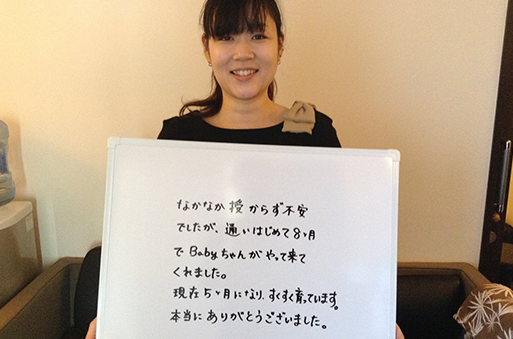 なかなか授からず不安
でしたが、通いはじめて8ヶ月
でBabyちゃんがやって来て
くれました。
現在5ヶ月になり、すくすく育っています。
本当にありがとうございました。